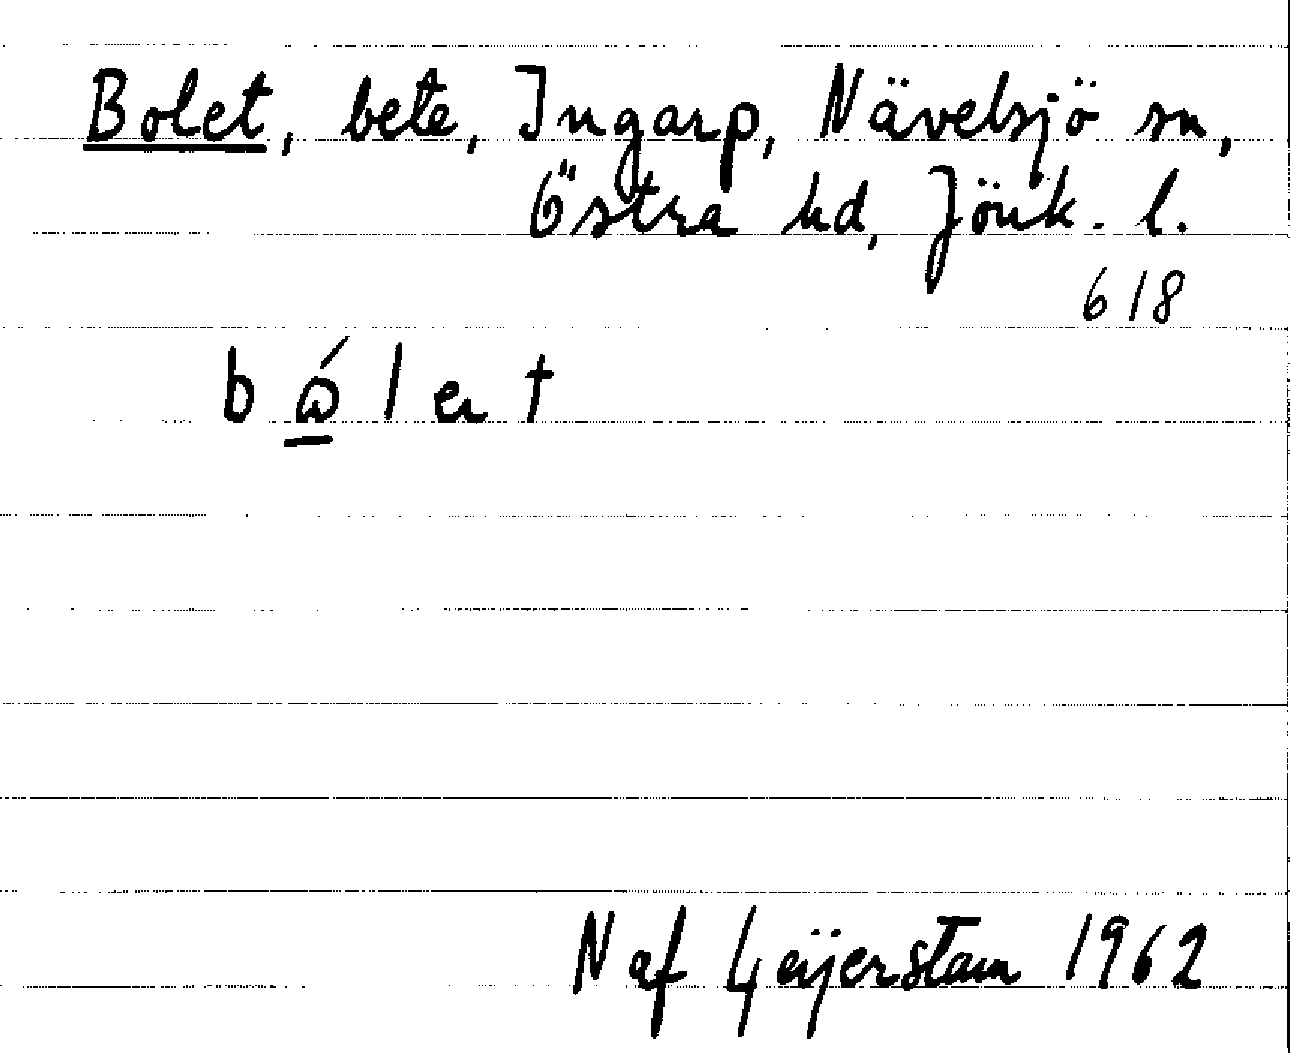 Bolet, bete, Ingarp, Nävelsjö sn,
Östra hd, Jönk. l.
618
N af Geijerstam 1962